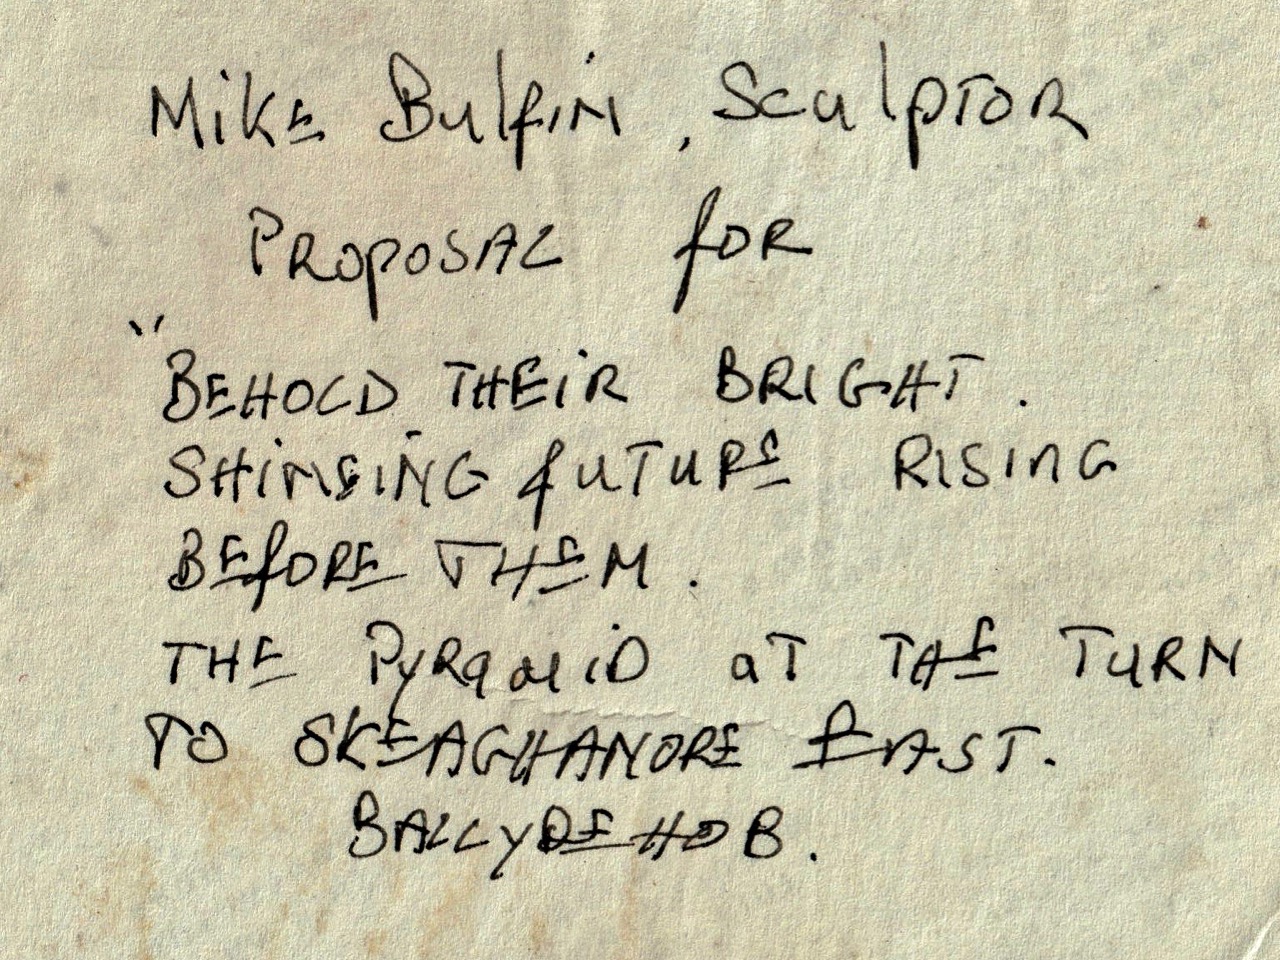 Mike Bulfin, Sculptor
PROPOSAL for
"BEHOLD THEIR BRIGHT.
SHINEING fUTURE RISING
BEfORE THEM.
THE PyRamiD aT THE TURN
TO SKEAGHANORE EAST.
BALLyDEHOB.